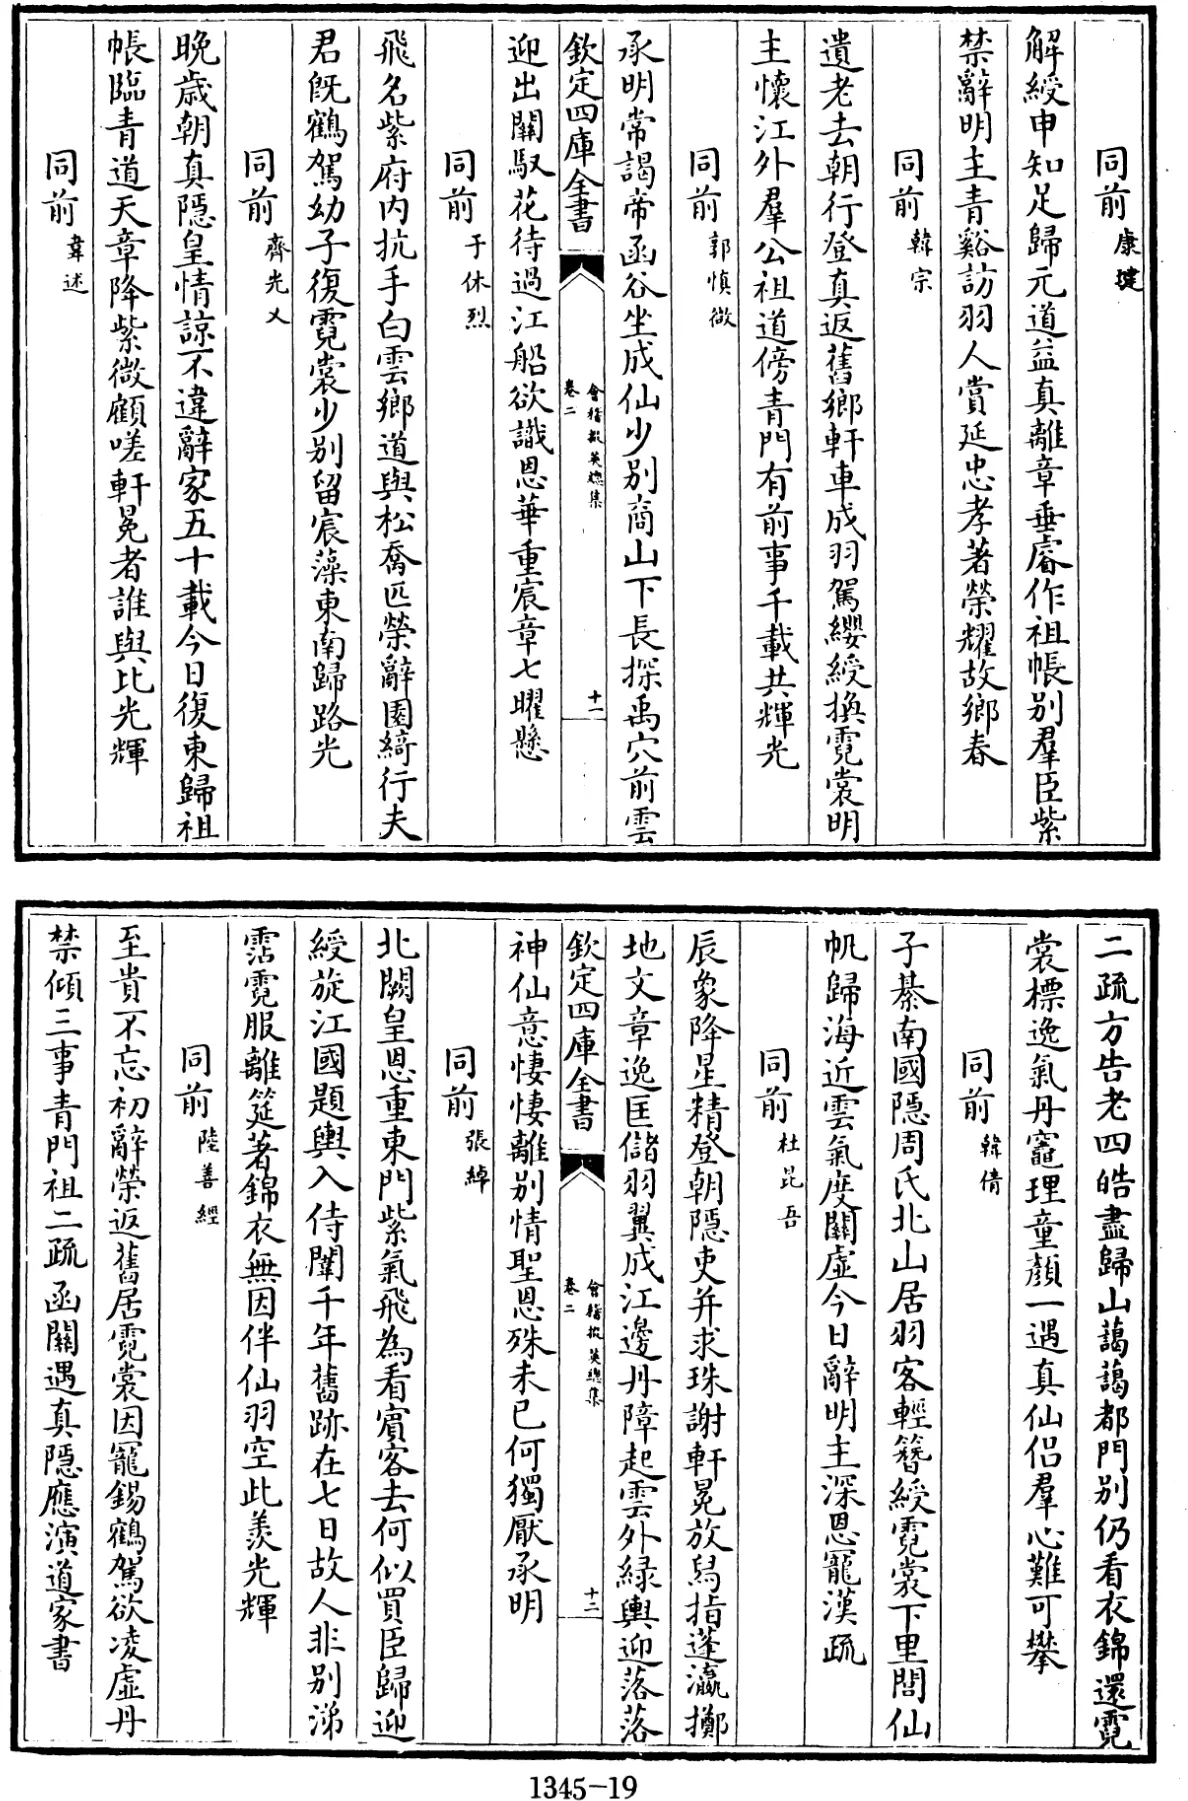 同前 康㨗
解綬申知足歸元道益真離章垂睿作祖帳别羣臣紫
禁辭明主青谿訪羽人賞延忠孝著榮耀故鄉春
同前 韓宗
遺老去朝行登真返舊鄉軒車成羽駕纓綬換霓裳明
主懷江外羣公祖道傍青門有前事千載共輝光
同前 郭慎微
承明常謁帝函谷坐成仙少别商山下長探禹穴前雲
欽定四庫全書
會稽掇英總集
卷二
十一
迎出關馭花待過江船欲識恩華重宸章七曜懸
同前 于休烈
飛名紫府内抗手白雲鄉道與松喬匹榮辭園綺行夫
君旣鶴駕幼子復霓裳少别留宸藻東南歸路光
同前 齊光乂
晩歳朝真隱皇情諒不違辭家五十載今日復東歸祖
帳臨青道天章降紫微顧嗟軒冕者誰與比光輝
同前 韋述
二疏方告老四皓盡歸山藹藹都門别仍看衣錦還霓
裳標逸氣丹竈理童顔一遇真仙侣羣心難可攀
同前 韓倩
子綦南國隱周氏北山居羽客輕簪綬霓裳下里閭仙
帆歸海近雲氣度關虚今日辭明主深恩寵漢疏
同前 杜昆吾
辰象降星精登朝隱吏并求珠謝軒冕放舄指蓬瀛擲
地文章逸匡儲羽翼成江邊丹障起雲外緑輿迎落落
欽定四庫全書
會稽掇英總集
卷二
十二
神仙意悽悽離别情聖恩殊未已何獨厭承明
同前 張綽
北闕皇恩重東門紫氣飛為看賓客去何似買臣歸迎
綬旋江國題輿入侍闈千年舊跡在七日故人非别涕
霑霓服離筵著錦衣無因伴仙羽空此羨光輝
同前 陸善經
至貴不忘初辭榮返舊居霓裳因寵錫鶴駕欲凌虚丹
禁傾三事青門祖二疏函關遇真隱應演道家書
1345-19